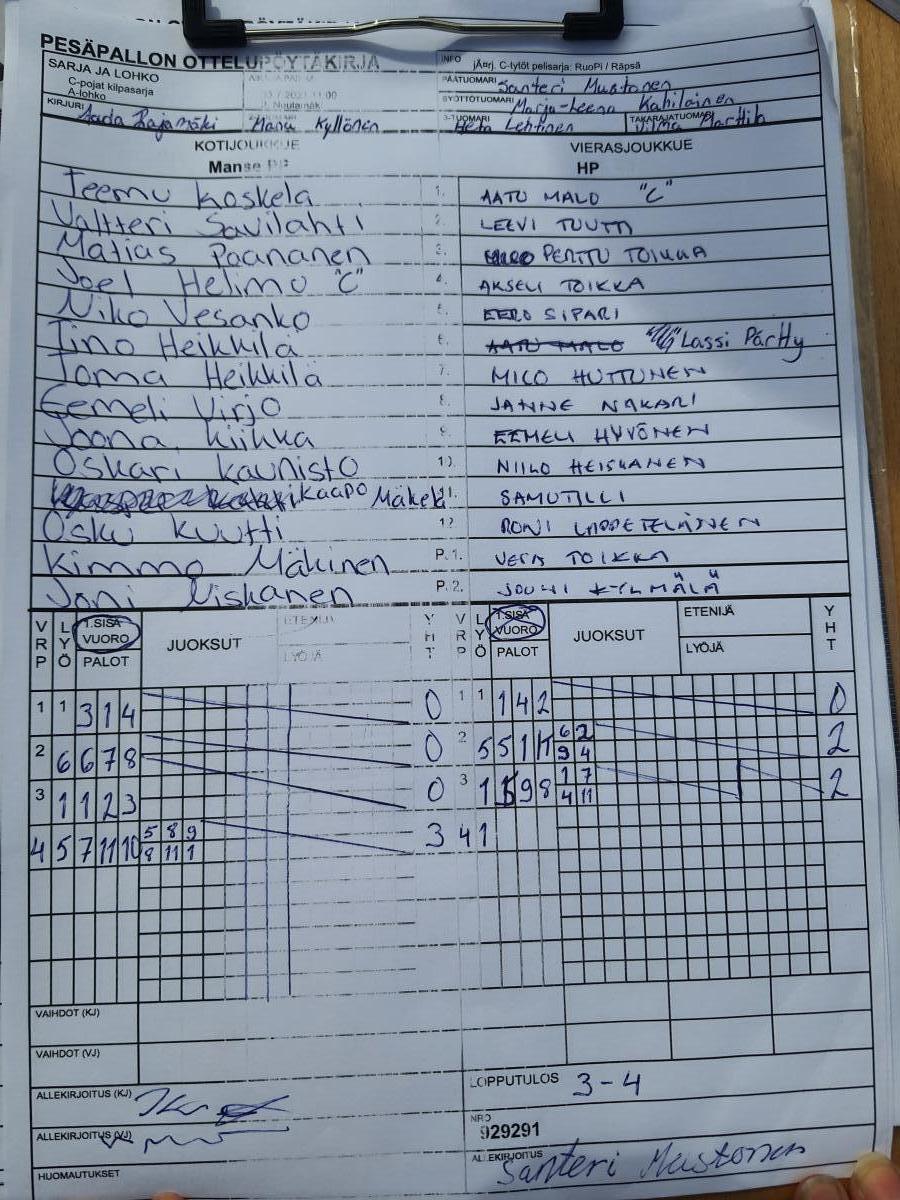 PESÄPALLON OTTELUPÖYTÄKIRJA
SARJA JA LOHKO
C-pojat kilpasarja
A-lohko
INFO jÄ¤rj. C-tytöt pelisarja: RuoPi / Räpsä
PÄÄTUOMARI Santeri Mustonen
SYÖTTÖTUOMARI Marja-Leena Kahilainen
KIRJURI Aada Rajamäki Manu Kyllönen
3-TUOMARI Heta Lehtinen TAKARAJATUOMARI Vilma Marttila
KOTIJOUKKUE VIERASJOUKKUE
Manse PP HP
Teemu Koskela 1. AATU MALO "C"
Valtteri Savilahti 2. LEEVI TUUTTI
Matias Paananen 3. PERTTU TOIKKA
Joel Helimo "C" 4. AKSELI TOIKKA
Niko Vesanko 5. EERO SIPARI
Tino Heikkilä 6. AATU MALO Lassi Pärtty
Joma Heikkilä 7. MICO HUTTUNEN
Eemeli Virjo 8. JANNE NAKARI
Joona Kiikka 9. EEMELI HYVÖNEN
Oskari Kaunisto 10. NIILO HEISKANEN
Kaapo Mäkelä 11. SAMU TILLI
Osku Kuutti 12 RONI LAPPETELÄINEN
Kimmo Mäkinen P.1. VESA TOIKKA
Joni Niskanen P.2. JOUNI KYLMÄLÄ
VRP LYÖ 1.SISÄVUORO PALOT JUOKSUT ETENIJÄ LYÖJÄ YHT VRP LYÖ 1.SISÄVUORO PALOT JUOKSUT ETENIJÄ LYÖJÄ YHT
1 1 3 1 4 0 1 1 1 4 2 0
2 6 6 7 8 0 2 5 5 1 11 6 2 2
9 4
3 1 1 2 3 0 3 1 9 8 1 7 2
4 11
4 5 7 11 10 5 8 9 3 4 1
8 11 1
VAIHDOT (KJ)
VAIHDOT (VJ)
ALLEKIRJOITUS (KJ)
LOPPUTULOS 3-4
ALLEKIRJOITUS (VJ)
NRO
929291
HUOMAUTUKSET
ALLEKIRJOITUS Santeri Mustonen